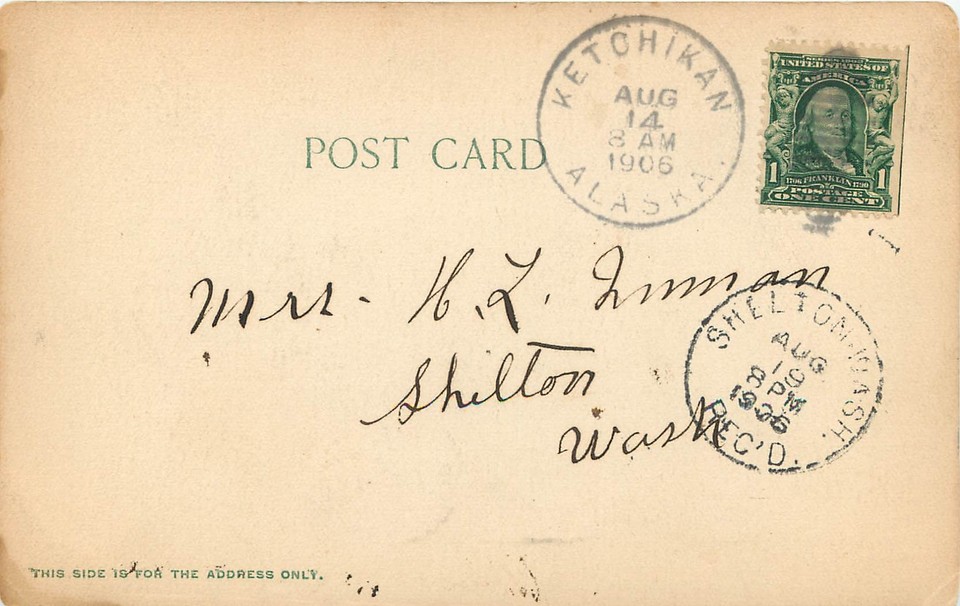 KETCHIKAN
AUG
14
8 AM
1906
ALASKA.
SERIES 1902
UNITED STATES OF
AMERICA
1706 FRANKLIN 1790
POSTAGE
1 1
ONE CENT
POST CARD
Mrs. H. L. Inman
Shelton
Wash
SHELTON, WASH.
AUG
19
8 PM
1906
REC'D.
THIS SIDE IS FOR THE ADDRESS ONLY.